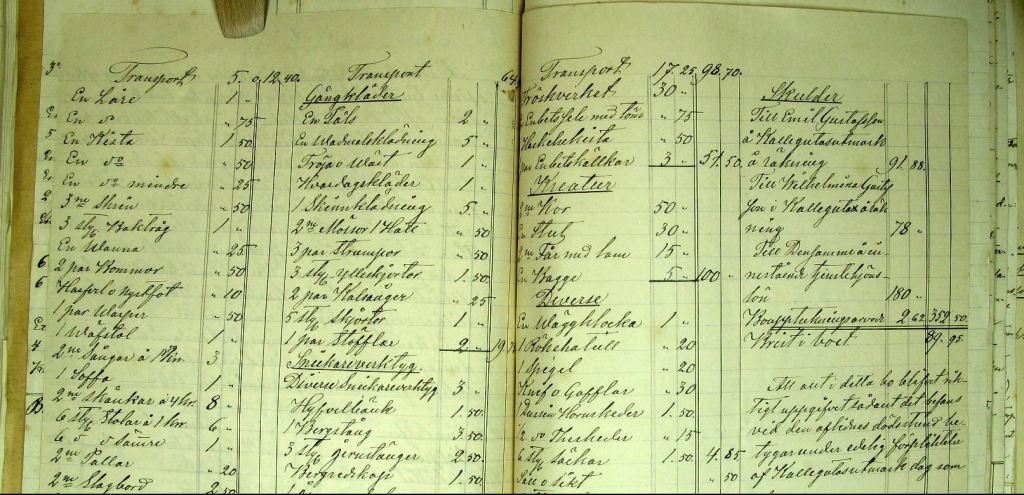 Transport 5. 0. 12. 40.
En Låre 1 "
En do " 75
En Kista 1. 50.
En do " 50
En do mindre " 25
3ne Skrin " 50
3 st. Baktråg 1 "
En Wanna " 25.
2 par Kommor " 50
" 10
1 par Warper " 50
1 Wäfstol 1 "
2ne Sängar á 3
1 Soffa 1 "
2ne á 4 kr. 8 "
6 st. Stolar á 1 kr. 6 "
6 " " sämre 1 "
2ne Pallar " 20
2ne Slagbord 2 50
Transport 64
Gångkläder
En 2 "
En Wadmalsklädning 5 "
Tröja o Wäst 1 "
Hvardagskläder 1 "
1 Skinnklädning 5. "
2ne Mössor 1 Hatt " 50
3 par Strumpor " 50
3 st. Ylleskjortor 1. 50
2 par Kalsånger " 25
5 st. Skjortor 1 "
1 par Stöfflar 2 "
Snickareverktyg.
Diverse Snickareverktyg 3 "
Hyfvelbänk 1. 50.
1 3. 50.
3 st. 2. 50.
Bergredskap 1. 50.
Transport 17. 25. 98. 70.
Tröskverket 30 "
Enbetssele med töm " 75
Hackelsekista " 50
par Enbetskälkar 3 " 51. 50.
Kreatur
2ne Kor 50 "
En Stut 30 "
2ne Får med lam 15 "
En Bagge 5 " 100 "
Diverse
En Wäggklocka 1 "
1 " 20
1 Spegel " 20
Knif o Gafflar " 30
1 Dussin Hornskedar 1. 50.
1/2 do Theskedar " 15
6 st. Säckar 1. 50. 4. 85
Såll o Sikt " 50
Skulder
Till Emil Gustafsson
å Kallegutasutmark
å räkning 91. 88.
Till Wilhelmina Gustaf
son i Kallegutas å räk
ning 78 "
Till Densamma in
nestående tjenstehjons
lön 180 "
Bouppteckningsarvode 2 62. 359. 50.
Brist i boet 89. 95.
Att allt i detta bo blifvit rik
tigt uppgifvet sådant det befans
vid den aflidnes dödsstund be
tygar under edelig förpligtelse
af Kallegutasutmark dag som